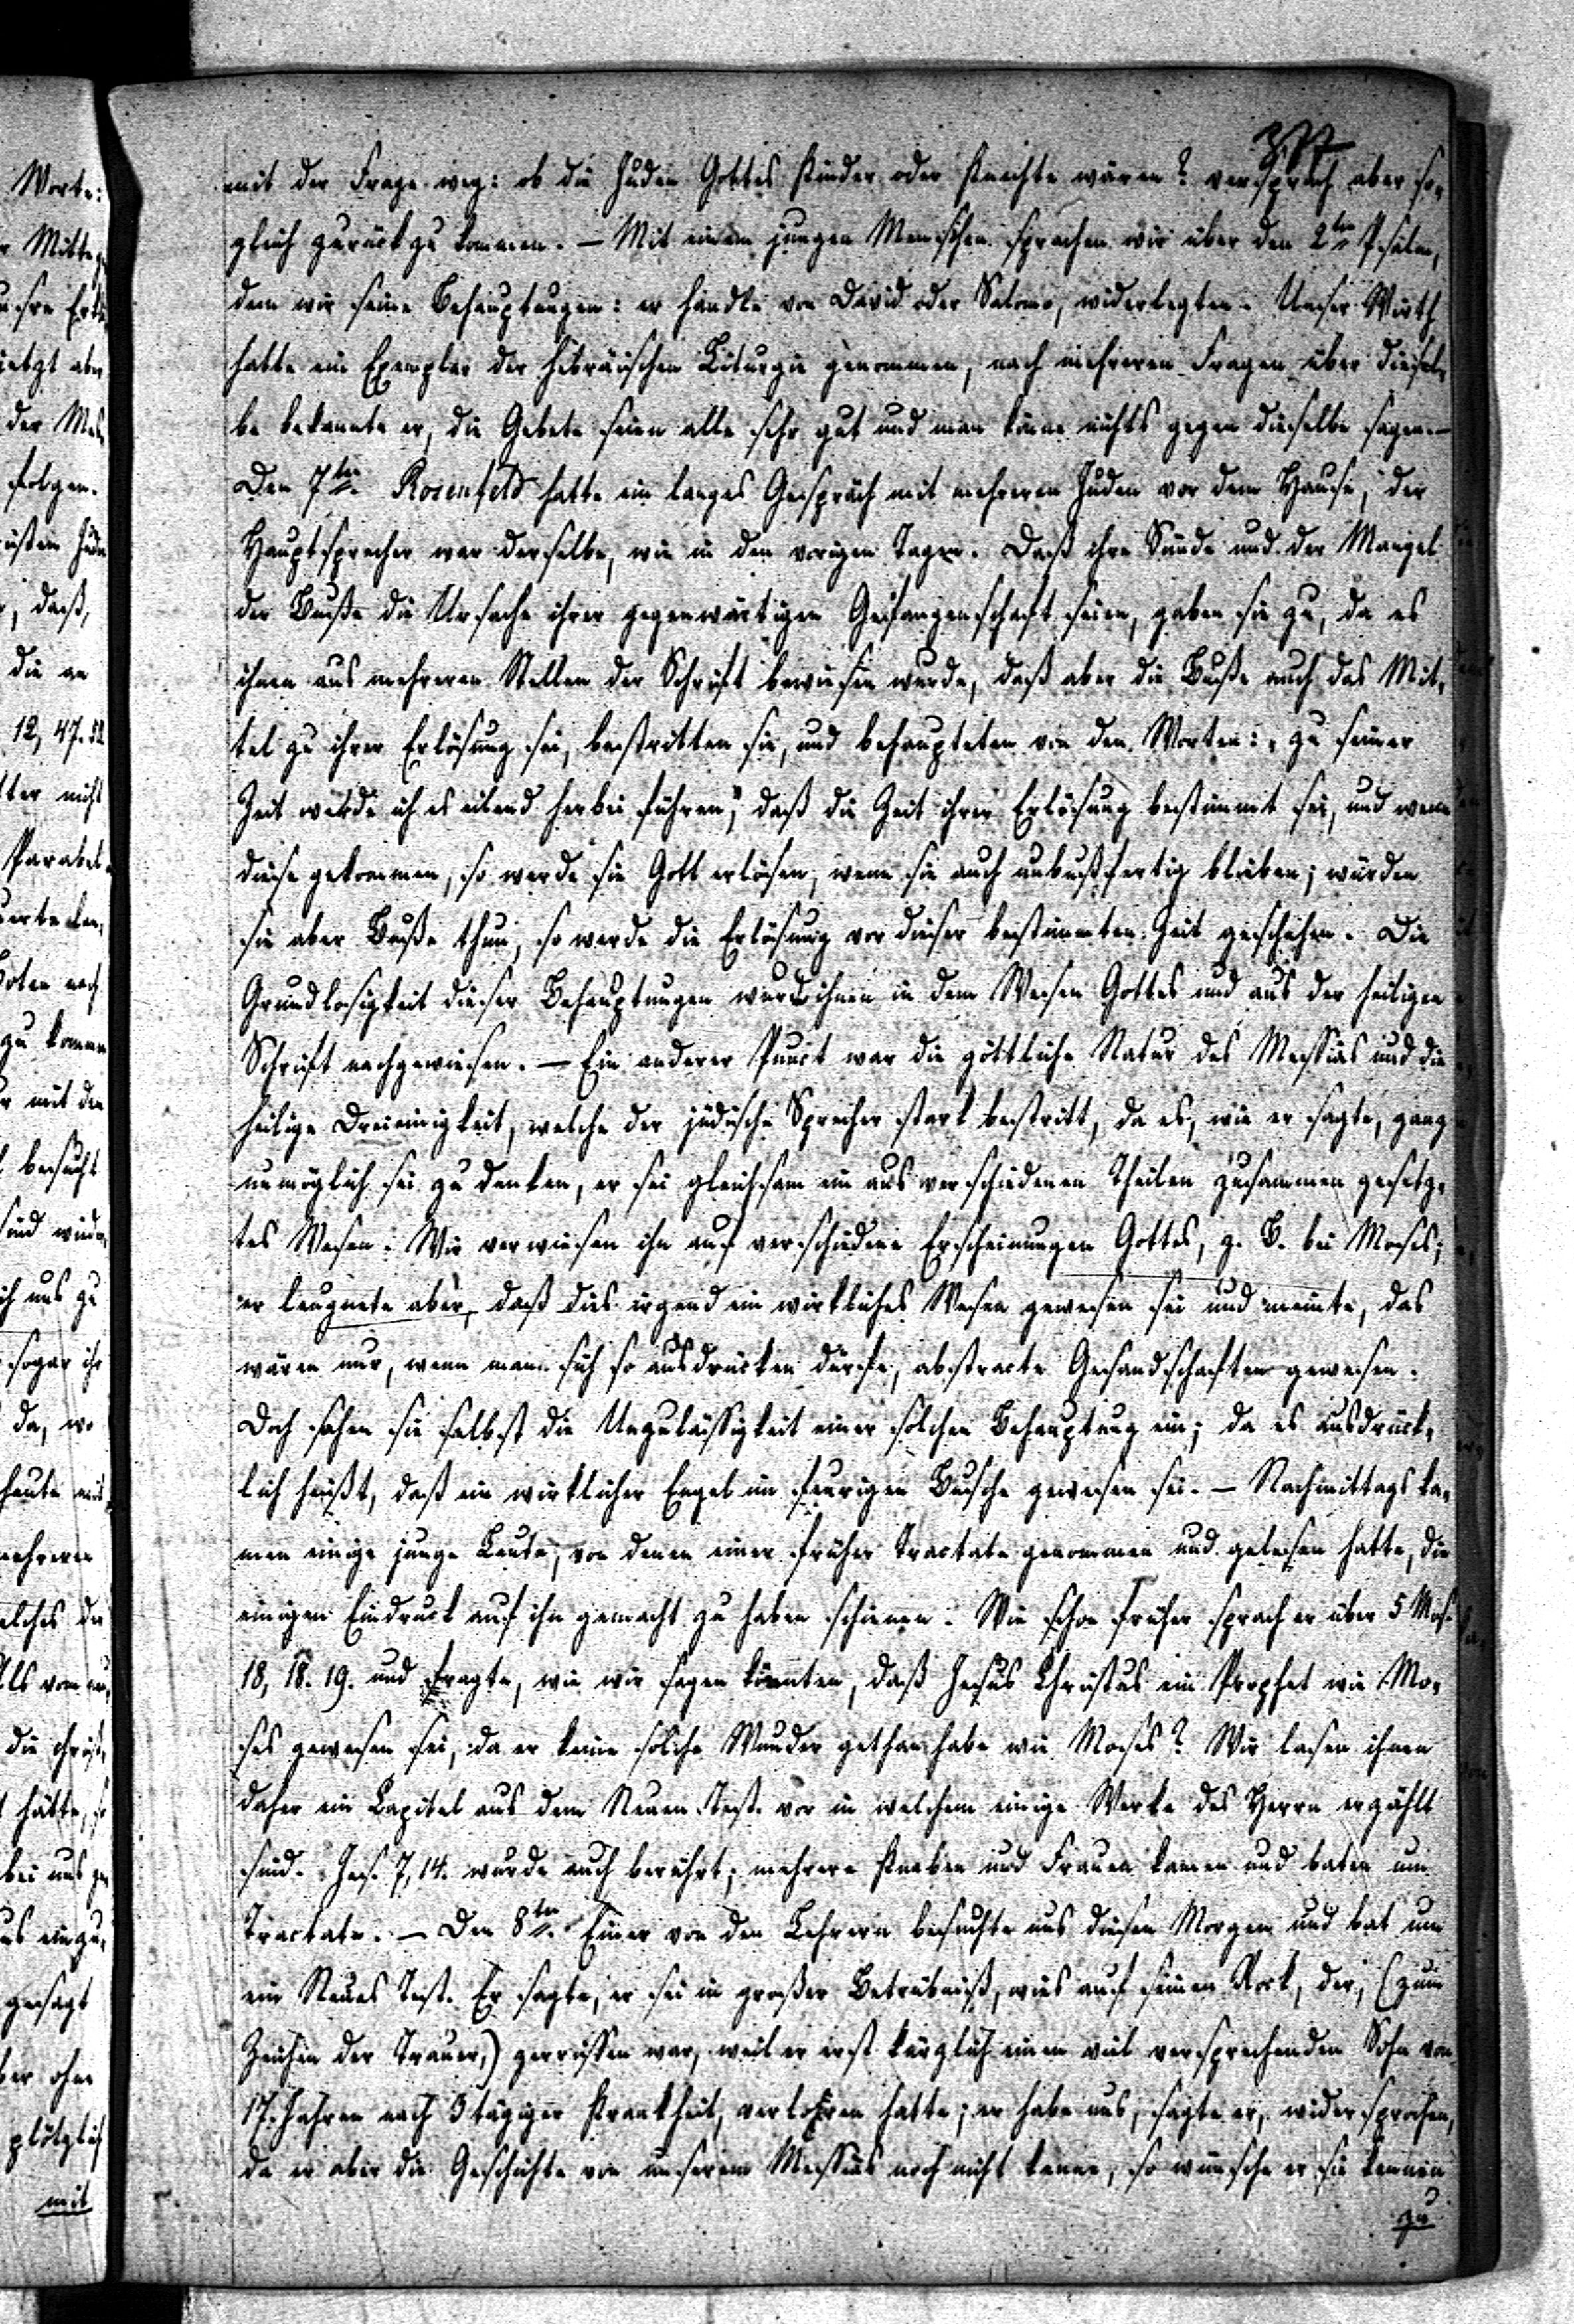 mit der Frage weg: ob die Juden Gottes Kinder oder Knechte wären? versprach aber so-
gleich zurück zu kommen. — Mit einem jungen Menschen sprachen wir über den 2ten Psalm,
dem wir seine Behauptungen: er handle von David oder Salomo, widerlegten. Unser Wirth
hatte ein Exemplar der hebräischen Liturgie genommen, nach mehreren Fragen über diesel-
be bekannte er, die Gebete seien alle sehr gut und man könne nichts gegen dieselbe sagen. —
Den 7ten. Rosenfeld hatte ein langes Gespräch mit mehreren Juden vor dem Hause, der
Hauptsprecher war derselbe, wie in den vorigen Tagen. Daß ihre Sünde und der Mangel
der Buße die Ursache ihrer gegenwärtigen Gefangenschaft seien, gaben sie zu, da es
ihnen aus mehreren Stellen der Schrift bewiesen wurde, daß aber die Buße auch das Mit-
tel zu ihrer Erlösung sei, bestritten sie, und behaupteten von den Worten: „zu seiner
Zeit werde ich es eilend herbei führen", daß die Zeit ihrer Erlösung bestimmt sei, und wenn
diese gekommen, so werde sie Gott erlösen, wenn sie auch unbußfertig blieben; würden
sie aber Buße thun, so werde die Erlösung vor dieser bestimmten Zeit geschehen. Die
Grundlosigkeit dieser Behauptungen wurde ihnen in dem Wesen Gottes und aus der heiligen
Schrift nachgewiesen. — Ein anderer Punct war die göttliche Natur des Messias und die
heilige Dreieinigkeit, welche der jüdische Sprecher stark bestritt, da es, wie er sagte, ganz
unmöglich sei zu denken, er sei gleichsam ein aus verschiedenen Theilen zusammen gesetz-
tes Wesen. Wir verwiesen ihn auf verschiedene Erscheinungen Gottes, z. B. bei Moses;
er leugnete aber, daß dies irgend ein wirkliches Wesen gewesen sei und meinte, das
wären nur, wenn man sich so ausdrücken dürfe, abstracte Gesandschaften gewesen.
Doch sahen sie selbst die Unzulässigkeit einer solchen Behauptung ein; da es ausdrück-
lich heißt, daß ein wirklicher Engel im feurigen Busche gewesen sei. — Nachmittags ka-
men einige junge Leute, von denen einer früher Tractate genommen und gelesen hatte, die
einigen Eindruck auf ihn gemacht zu haben schienen. Wie schon früher sprach er über 5 Mos.
18, 18. 19. und fragte, wie wir sagen könnten, daß Jesus Christus ein Prophet wie Mo-
ses gewesen sei, da er keine solche Wunder gethan habe wie Moses? Wir lasen ihnen
daher ein Capitel aus dem Neuen Test. vor in welchem einige Werke des Herrn erzählt
sind. Jes. 7, 14. wurde auch berührt; mehrere Knaben und Frauen kamen und baten um
Tractate. — Den 8ten. Einer von den Lehrern besuchte uns diesen Morgen und bat um
ein Neues Test. Er sagte, er sei in großer Betrübniß, wies auf seinen Rock, der, (zum
Zeichen der Trauer,) zerrissen war, weil er erst kürzlich einen viel versprechenden Sohn von
17. Jahren nach 3 tägiger Krankheit, verlohren hatte; er habe uns, sagte er, widersprochen,
da er aber die Geschichte von unserem Messias noch nicht kenne, so wünsche er sie kennen
zu